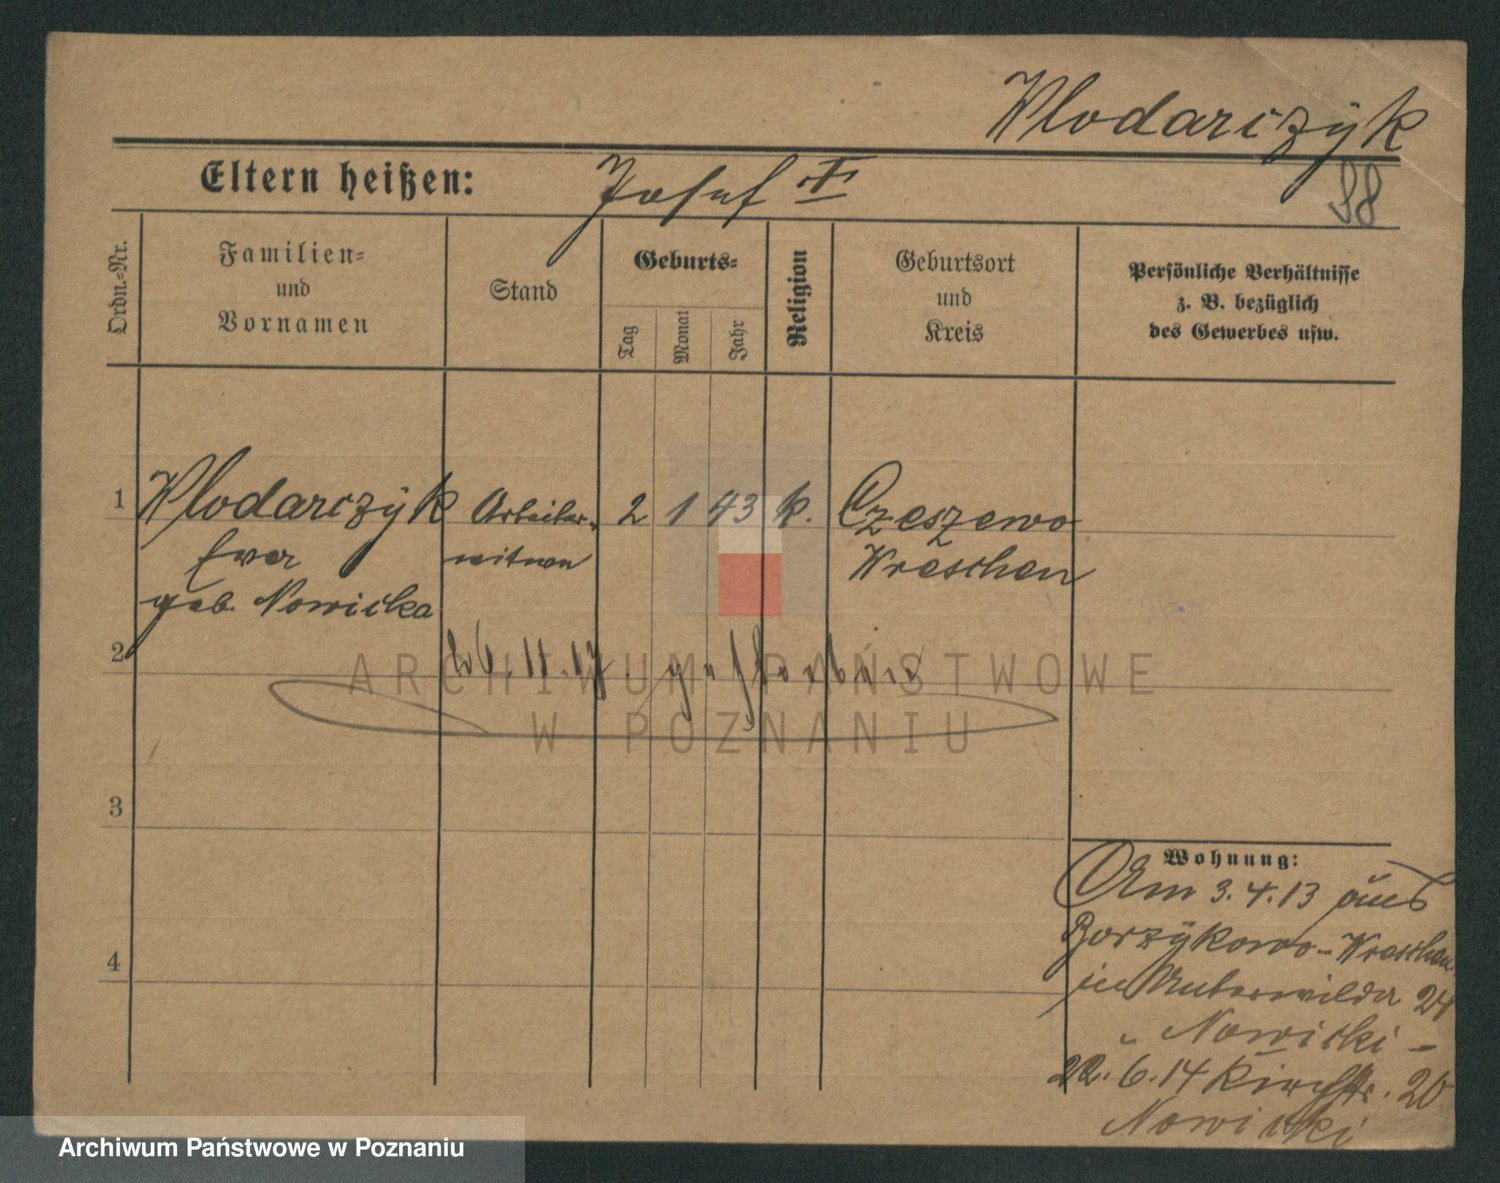 Wlodarczÿk
Eltern heißen: Josef †
98
Ordn.-Nr.
Familien-
und
Vornamen
Stand
Geburts-
Tag
Monat
Jahr
Religion
Geburtsort
und
Kreis
Persönliche Verhältnisse
z. B. bezüglich
des Gewerbes usw.
1 Wlodarczÿk Arbeiter- 2 1 43 k. Czeszewo
Eva witwe Wreschen
geb. Nowicka
2 26.11.17 gestorben
ARCHIWUM PAŃSTWOWE
W POZNANIU
3
4
Wohnung:
Am 3.4.13 aus
Borzÿkowo-Wreschen
in Unterwilda 24
" Nowicki -
22.6.14 Kirchstr. 20
Nowicki
Archiwum Państwowe w Poznaniu